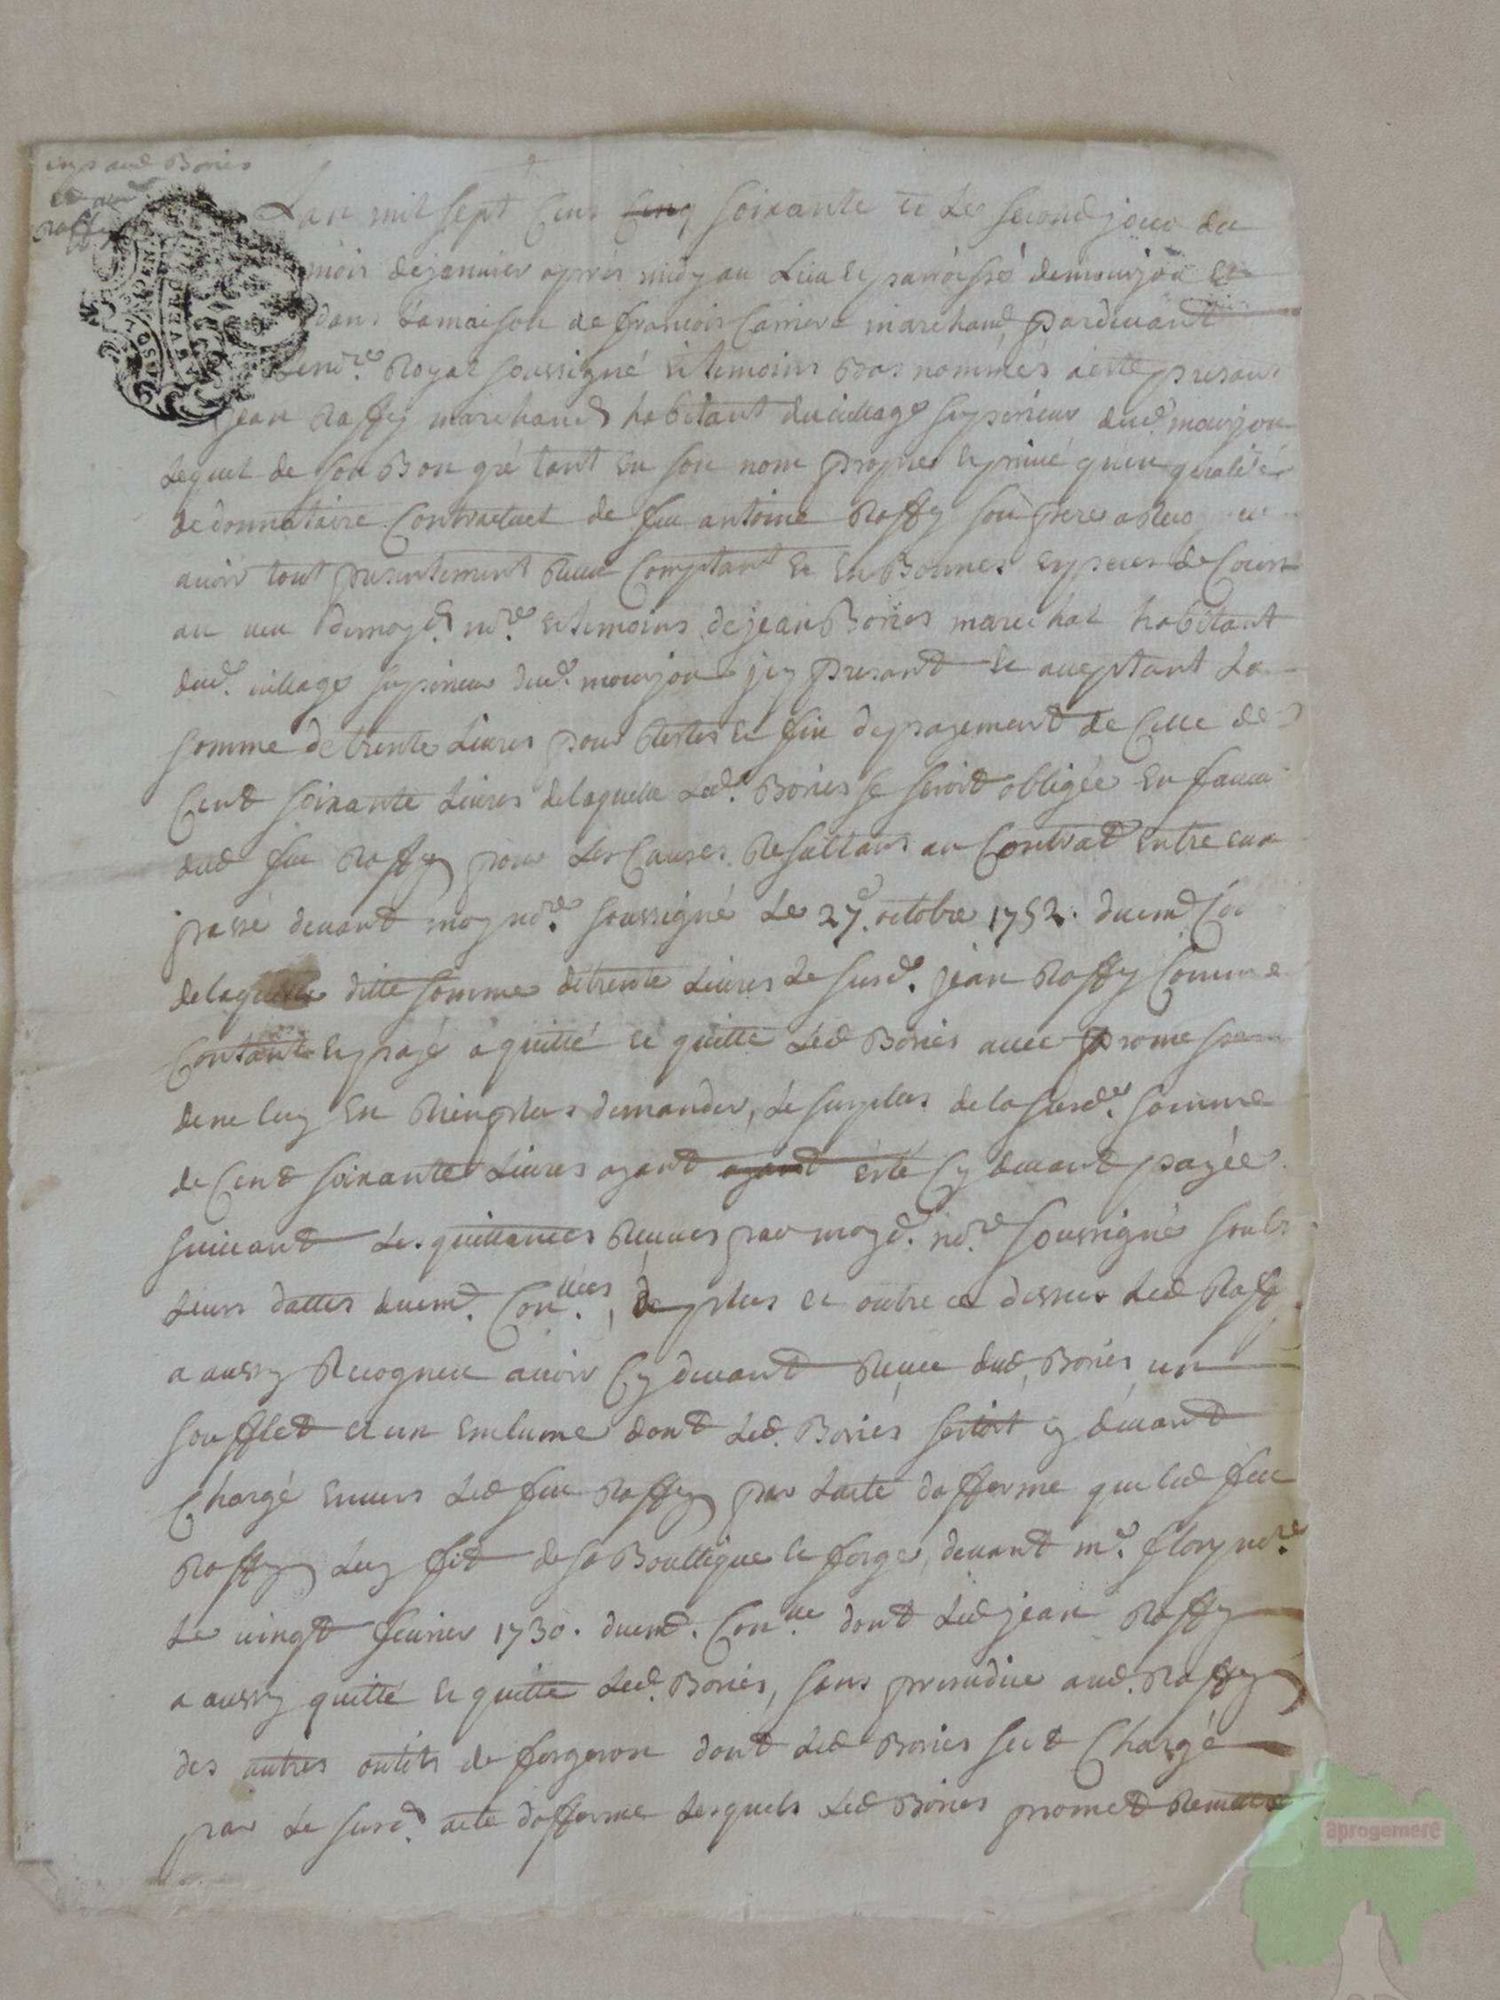 Bories
Raffy
Lan mil sept cens cinq soixante et le second jour du
mois de jenvier après midy au lieu et parroisse de mourjou et
dans la maison de francois Carriere marchand pardevant
le no.re Royal soussigné et temoins bas nommés a esté presans
jean Raffy marchand habitant du village superieur dud. mourjou
lequel de son bon gré tant en son nom propre et privé quen qualité
de donnataire contractuel de feu antoine Raffy son frere a
avoir tout presentement receu comptant et en bonnes especes de cours
au veu de moyd. no.re et temoins de jean Bories marechal habitant
dud. village superieur dud. mourjou jcy presant et acceptant la
somme de trente livres pour restes et fin de payement de celle de
Cent soixante livres de laquelle led. Bories se seroit obligée en faveur
dud feu Raffy pour les causes resultans au contrat entre eux
passé devant moy no.re soussigné le 27.e octobre 1752. duemt Con
de laquelle ditte somme de trente livres le susd. jean Raffy comme
contant et payé a quitté et quitte led Bories avec promesse
de ne luy en rien plus demander, le surplus de la susd.e somme
de Cent soixante livres ayant ayant esté cy devant payée
suivant les quittances receues par moyd. no.re soussigné soubs
leurs dattes duemt. Con.llées, de plus et outre ce dessus led Raffy
a aussy recogneu avoir cy devant receu dud Bories un
soufflet et un enclume dont led. Bories sestoit cy devant
chargé envers led feu Raffy par lacte dafferme que led feu
Raffy luy fit de sa bouttique et forge, devant m.e flory no.re
le vingt fevrier 1730. duemt. Con.llé dont led jean Raffy
a aussy quitté et quitte led. Bories, sans prejudice aud. Raffy
des autres outils de forgeron dont led Bories sest chargé
par le susd. acte dafferme lesquels led Bories promet remettre
aprogemere